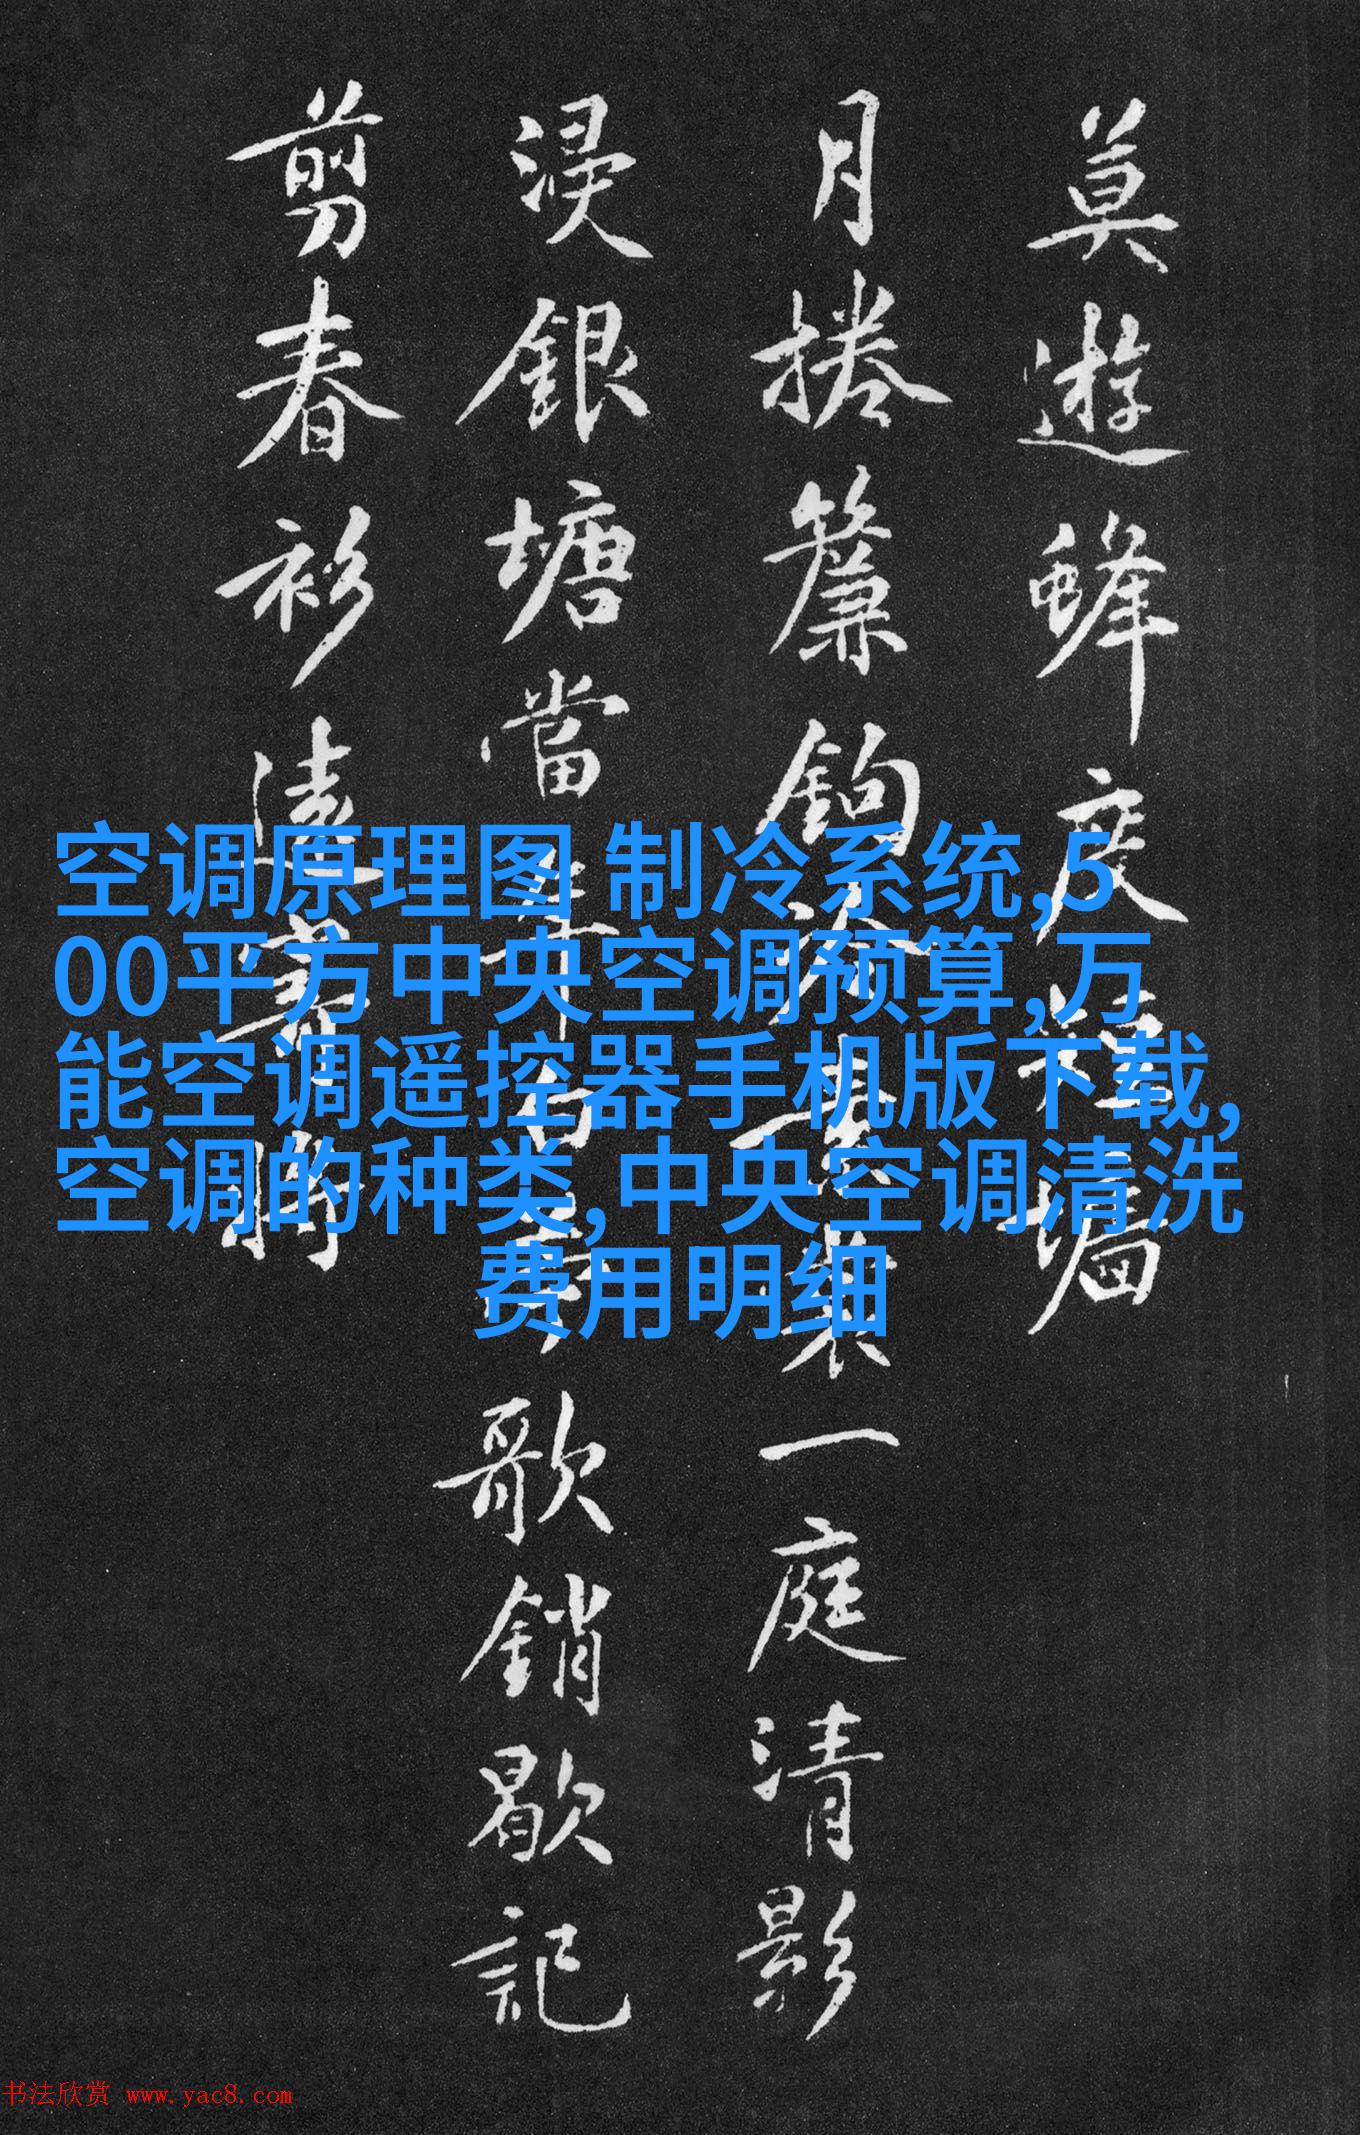 莫遊蜂度短墻
月捲簾鉤冷畫裳一庭清影
浸銀塘當年白夢歌銷歇記
剪春衫遠寄將
空调原理图 制冷系统,5
00平方中央空调预算,万
能空调遥控器手机版下载,
空调的种类,中央空调清洗
费用明细
书法欣赏 www.yac8.com